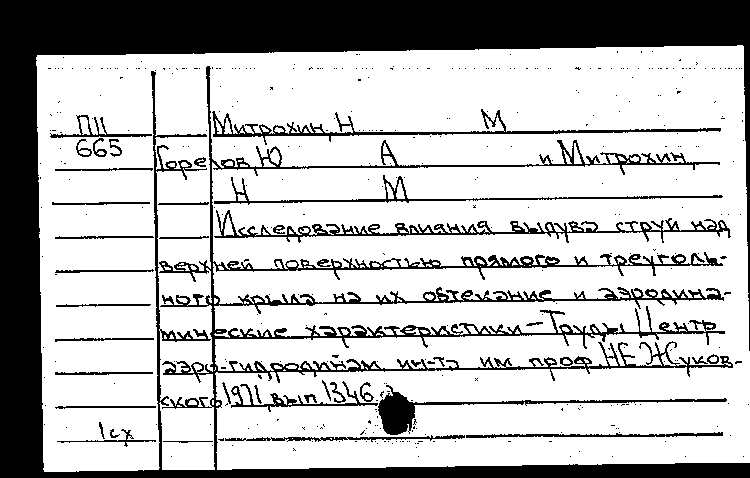 П11 Митрохин, Н М
665 Горелов, Ю А и Митрохин,
Н М
Исследование влияния выдува струй над
верхней поверхностью прямого и треуголь-
ного крыла на их обтекание и аэродина-
мические характеристики - Труды Центр
аэро-гидродинам. ин-та им. проф. НЕ Жуков-
ского 1971, вып. 1346
1сх